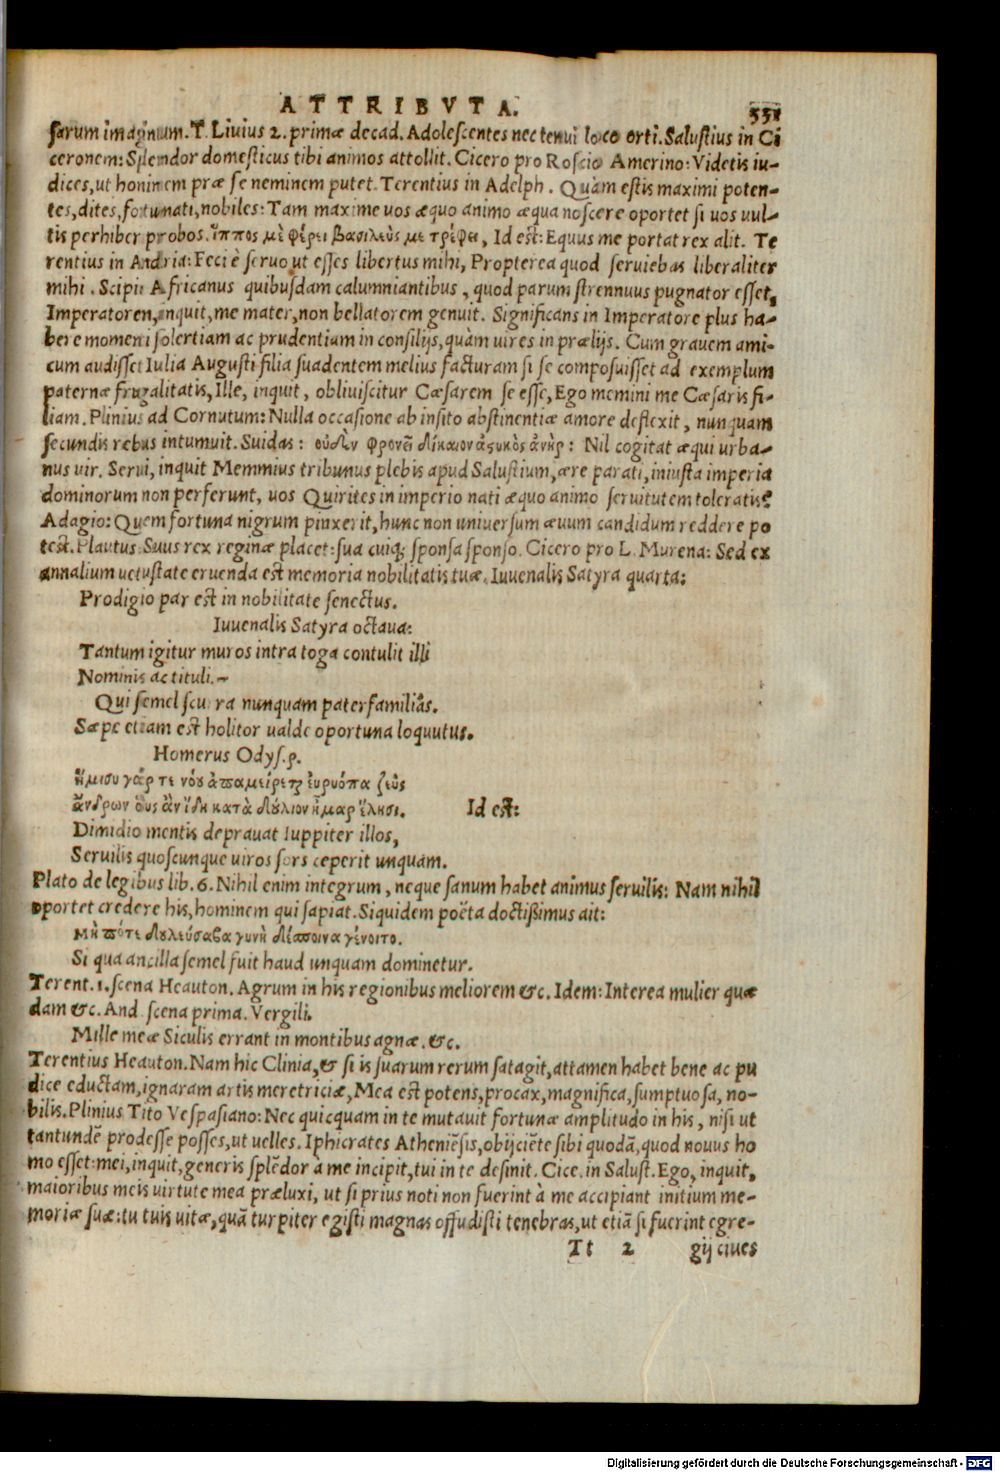 ATTRIBVTA. 551
sarum imaginum. T. Liuius 2. primæ decad. Adolescentes nec tenui loco orti. Salustius in Ci
ceronem: Splendor domesticus tibi animos attollit. Cicero pro Roscio Amerino: Videtis iu-
dices, ut hominem præ se neminem putet. Terentius in Adelph. Quàm estis maximi poten-
tes, dites, fortunati, nobiles: Tam maxime uos æquo animo æqua noscere oportet si uos uul-
tis perhiberi probos. ἵππος μὲ φέρει βασιλεὺς με τρέφει, Id est: Equus me portat rex alit. Te
rentius in Andria: Feci è seruo ut esses libertus mihi, Propterea quod seruiebas liberaliter
mihi. Scipio Africanus quibusdam calumniantibus, quod parum strennuus pugnator esset,
Imperatorem, inquit, me mater, non bellatorem genuit. Significans in Imperatore plus ha-
bere momenti solertiam ac prudentiam in consilijs, quàm uires in prælijs. Cum grauem ami-
cum audisset Iulia Augusti filia suadentem melius facturam si se composuisset ad exemplum
paternæ frugalitatis, Ille, inquit, obliuiscitur Cæsarem se esse, Ego memini me Cæsaris fi-
liam. Plinius ad Cornutum: Nulla occasione ab insito abstinentiæ amore deflexit, nunquam
secundis rebus intumuit. Suidas: οὐδὲν φρονεῖ δίκαιον ἀστικὸς ἀνὴρ: Nil cogitat æqui urba-
nus uir. Serui, inquit Memmius tribunus plebis apud Salustium, ære parati, iniusta imperia
dominorum non perferunt, uos Quirites in imperio nati æquo animo seruitutem toleratis?
Adagio: Quem fortuna nigrum pinxerit, hunc non uniuersum æuum candidum reddere po
test. Plautus. Suus rex reginæ placet: sua cuiq; sponsa sponso. Cicero pro L. Murena: Sed ex
annalium uetustate eruenda est memoria nobilitatis tuæ. Iuuenalis Satyra quarta:
Prodigio par est in nobilitate senectus.
Iuuenalis Satyra octaua:
Tantum igitur muros intra toga contulit illi
Nominis ac tituli.~
Qui semel scurra nunquam paterfamiliâs.
Sæpe etiam est holitor ualde oportuna loquutus.
Homerus Odys. ρ.
ἥμισυ γάρ τε νόου ἀπαμείρεται εὐρυόπα ζεὺς
ἄνδρων οὓς ἂν ἴδη κατὰ δούλιον ἦμαρ ἕλησι. Id est:
Dimidio mentis deprauat Iuppiter illos,
Seruilis quoscunque uiros sors ceperit unquam.
Plato de legibus lib. 6. Nihil enim integrum, neque sanum habet animus seruilis: Nam nihil
oportet credere his, hominem qui sapiat. Siquidem poëta doctißimus ait:
Μὴ πότε δουλεύσασα γυνὴ δέσποινα γένοιτο.
Si qua ancilla semel fuit haud unquam dominetur.
Terent. 1. scena Heauton. Agrum in his regionibus meliorem &c. Idem: Interea mulier quæ
dam &c. And. scena prima. Vergili.
Mille meæ Siculis errant in montibus agnæ. &c.
Terentius Heauton. Nam hic Clinia, & si is suarum rerum satagit, attamen habet bene ac pu
dice eductam, ignaram artis meretriciæ, Mea est potens, procax, magnifica, sumptuosa, no-
bilis. Plinius Tito Vespasiano: Nec quicquam in te mutauit fortunæ amplitudo in his, nisi ut
tantundē prodesse posses, ut uelles. Iphicrates Atheniēsis, obijciēte sibi quodā, quod nouus ho
mo esset: mei, inquit, generis splēdor à me incipit, tui in te desinit. Cice. in Salust. Ego, inquit,
maioribus meis uirtute mea præluxi, ut si prius noti non fuerint à me accipiant initium me-
moriæ suæ: tu tuis uitæ, quā turpiter egisti magnas offudisti tenebras, ut etiā si fuerint egre-
Tt 2 gij ciues
Digitalisierung gefördert durch die Deutsche Forschungsgemeinschaft - DFG